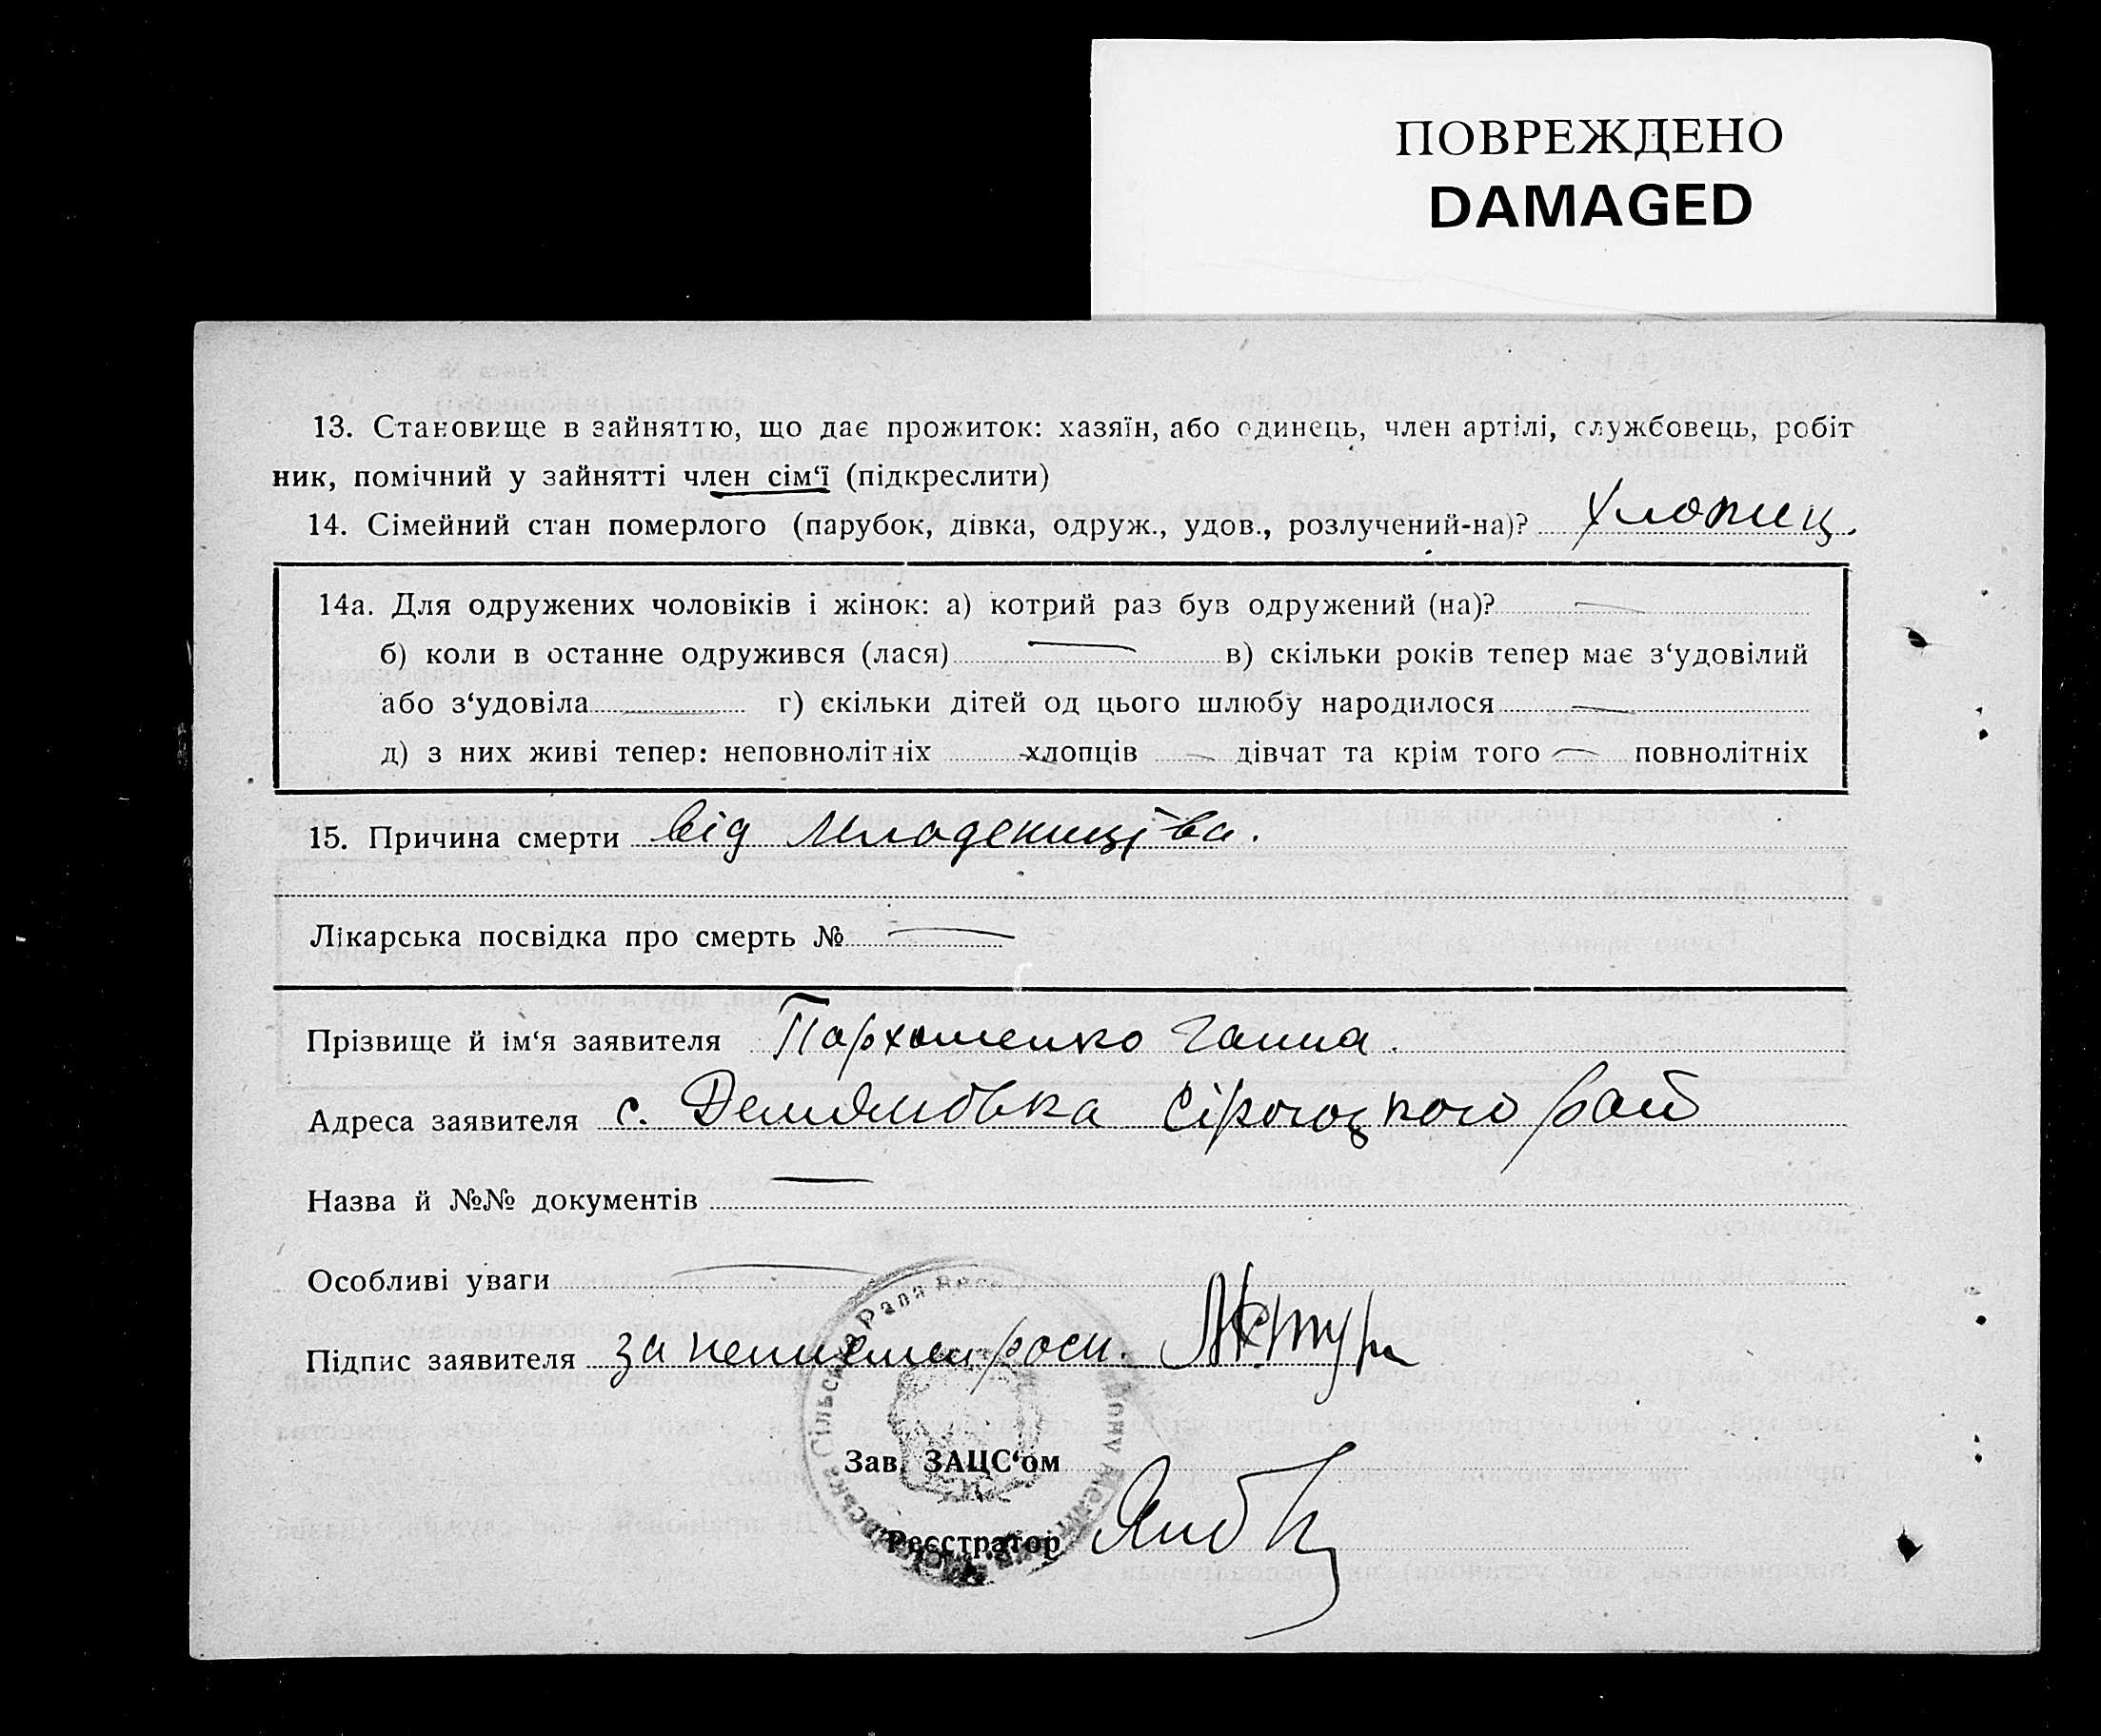 ПОВРЕЖДЕНО
DAMAGED
13. Становище в зайняттю, що дає прожиток: хазяїн, або одинець, член артілі, службовець, робіт
ник, помічний у зайнятті член сім‘ї (підкреслити)
14. Сімейний стан померлого (парубок, дівка, одруж., удов., розлучений-на)? хлопиц.
14а. Для одружених чоловіків і жінок: а) котрий раз був одружений (на)? —
б) коли в останне одружився (лася) — в) скільки років тепер має з‘удовілий
або з‘удовіла — г) скільки дітей од цього шлюбу народилося —
д) з них живі тепер: неповнолітніх — хлопців — дівчат та крім того — повнолітніх
15. Причина смерти від младенцтва.
Лікарська посвідка про смерть № —
Прізвище й ім‘я заявителя Пархоменко Ганна.
Адреса заявителя с. Демяновка Сірогоцкого рай
Назва й №№ документів —
Особливі уваги —
Підпис заявителя за неписмен росп.
Сільська Рада
Зав. ЗАЦС‘ом
Реєстратор